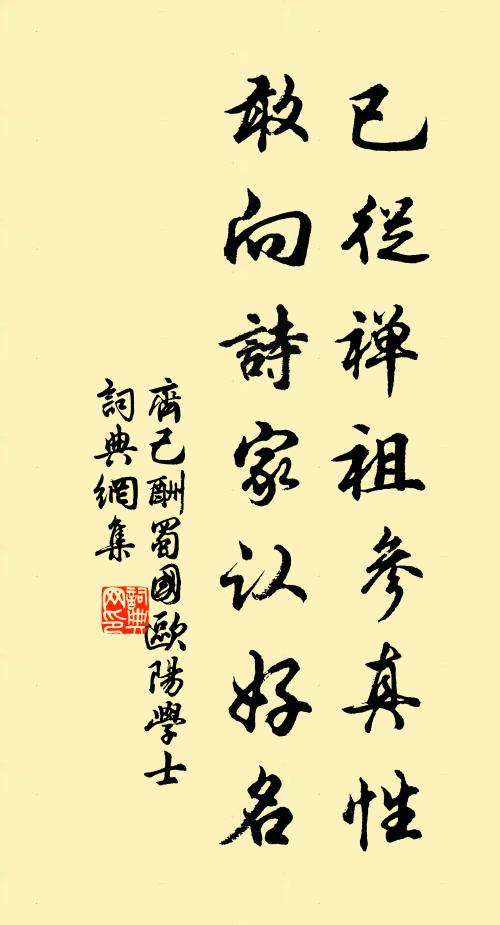 已從禅祖參真性
敢向詩家认好名
齊己酬蜀國歐陽學士
詞典網集
詞典
网印